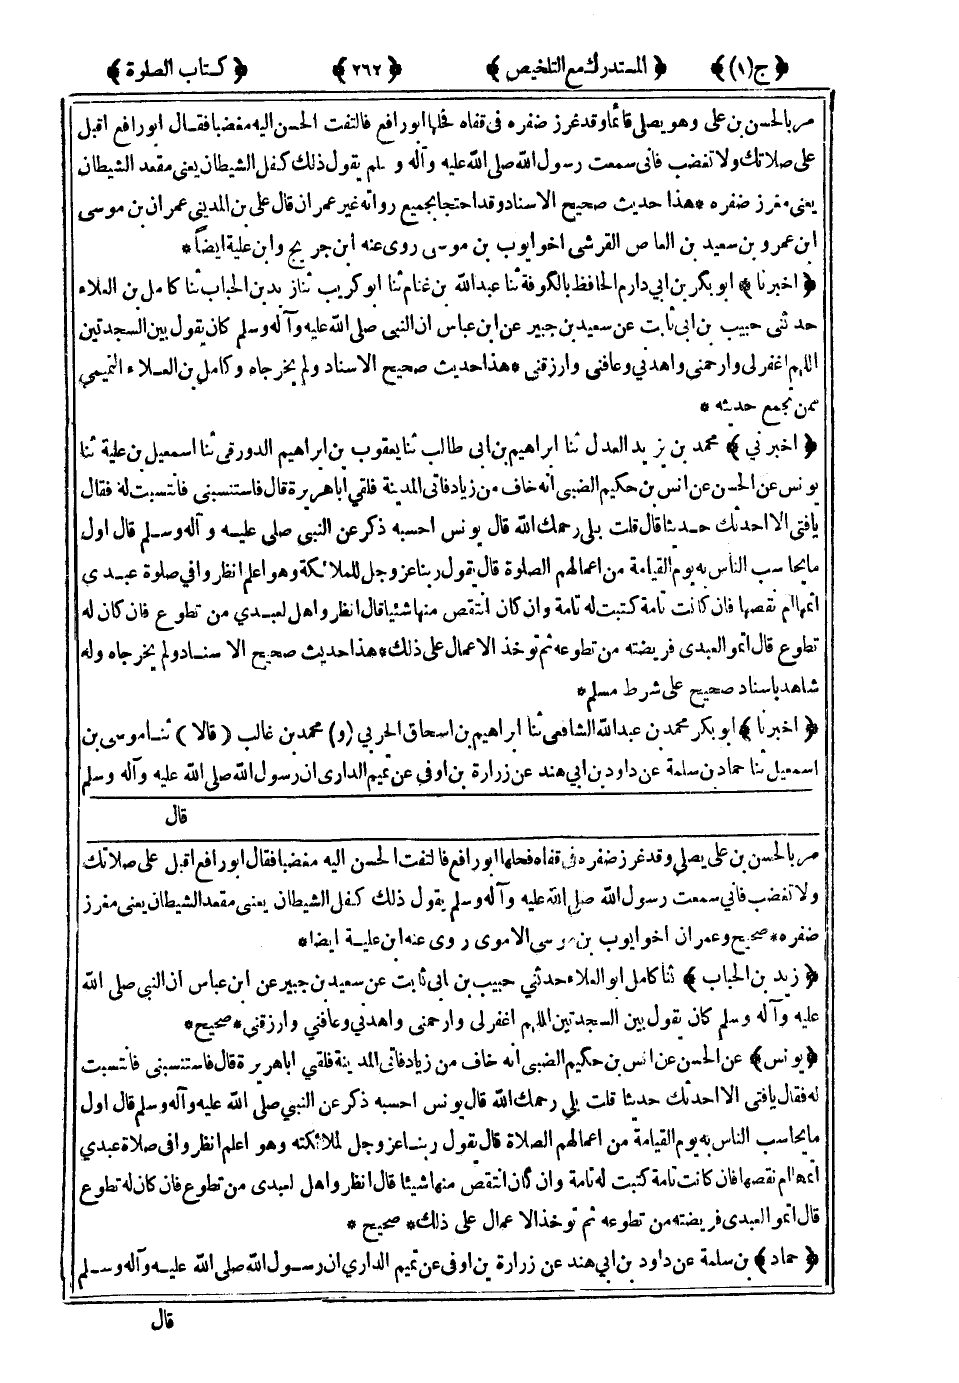 ﴿ ج (١) ﴾ ﴿ المستدرك مع التلخيص ﴾ ﴿ ٢٦٢ ﴾ ﴿ كتاب الصلوة ﴾
مر بالحسن بن علي وهو يصلي قائما وقد غرز ضفره في قفاه فحلها ابو رافع فالتفت الحسن اليه مغضبا فقال ابو رافع اقبل
على صلاتك ولا تغضب فاني سمعت رسول الله صلى الله عليه وآله و سلم يقول ذلك كفل الشيطان يعني مقعد الشيطان
يعني مغرز ضفره * هذا حديث صحيح الاسناد وقد احتجا بجميع رواته غير عمران قال علي بن المديني عمران بن موسى
ابن عمرو بن سعيد بن العاص القرشي اخو ايوب بن موسى روى عنه ابن جريج وابن علية ايضاً *
﴿ اخبرنا ﴾ ابو بكر بن ابي دارم الحافظ بالكوفة ثنا عبد الله بن غنام ثنا ابو كريب ثنا زيد بن الحباب ثنا كامل بن العلاء
حدثني حبيب بن ابي ثابت عن سعيد بن جبير عن ابن عباس ان النبي صلى الله عليه وآله وسلم كان يقول بين السجدتين
اللهم اغفر لي وارحمني واهدني وعافني وارزقني * هذا حديث صحيح الاسناد ولم يخرجاه وكامل بن العلاء التميمي
ممن يجمع حديثه *
﴿ اخبرني ﴾ محمد بن يزيد العدل ثنا ابراهيم بن ابي طالب ثنا يعقوب بن ابراهيم الدورقي ثنا اسمعيل بن علية ثنا
يونس عن الحسن عن انس بن حكيم الضبي انه خاف من زياد فاتى المدينة فلقي اباهريرة قال فاستنسبني فانتسبت له فقال
يافتى الا احدثك حديثا قال قلت بلى رحمك الله قال يونس احسبه ذكر عن النبي صلى عليه و آله وسلم قال اول
ما يحاسب الناس به يوم القيامة من اعمالهم الصلوة قال يقول ربنا عز وجل للملائكة وهو اعلم انظروا في صلوة عبدي
اتمها ام نقصها فان كانت تامة كتبت له تامة وان كان انتقص منها شيئا قال انظر واهل لعبدي من تطوع فان كان له
تطوع قال اتموا لعبدي فريضته من تطوعه ثم توخذ الاعمال على ذلك * هذا حديث صحيح الاسناد ولم يخرجاه وله
شاهد باسناد صحيح على شرط مسلم *
﴿ اخبرنا ﴾ ابو بكر محمد بن عبد الله الشافعي ثنا ابراهيم بن اسحاق الحربي (و) محمد بن غالب ( قالا ) ثنا موسى بن
اسمعيل ثنا حماد بن سلمة عن داود بن ابي هند عن زرارة بن اوفى عن تميم الداري ان رسول الله صلى الله عليه وآله وسلم
قال
مر بالحسن بن علي يصلي وقد غرز ضفره في قفاه فحلها ابو رافع فالتفت الحسن اليه مغضبا فقال ابو رافع اقبل على صلاتك
ولا تغضب فاني سمعت رسول الله صلى الله عليه وآله وسلم يقول ذلك كفل الشيطان يعني مقعد الشيطان يعني مغرز
ضفره * صحيح وعمران اخو ايوب بن موسى الاموى روى عنه ابن علية ايضا *
﴿ زيد بن الحباب ﴾ ثنا كامل ابو العلاء حدثني حبيب بن ابي ثابت عن سعيد بن جبير عن ابن عباس ان النبي صلى الله
عليه وآله وسلم كان يقول بين السجدتين اللهم اغفر لي وارحمني واهدني وعافني وارزقني * صحيح *
﴿ يونس ﴾ عن الحسن عن انس بن حكيم الضبي انه خاف من زياد فاتى المدينة فلقي اباهريرة قال فاستنسبني فانتسبت
له فقال يافتى الا احدثك حديثا قلت بلى رحمك الله قال يونس احسبه ذكر عن النبي صلى الله عليه وآله وسلم قال اول
ما يحاسب الناس به يوم القيامة من اعمالهم الصلاة قال يقول ربنا عز وجل لملائكته وهو اعلم انظروا في صلاة عبدي
اتمها ام نقصها فان كانت تامة كتبت له تامة وان كان انتقص منها شيئا قال انظر واهل لعبدي من تطوع فان كان له تطوع
قال اتموا لعبدي فريضته من تطوعه ثم توخذ الاعمال على ذلك * صحيح *
﴿ حماد ﴾ بن سلمة عن داود بن ابي هند عن زرارة بن اوفى عن تميم الداري ان رسول الله صلى الله عليه وآله وسلم
قال